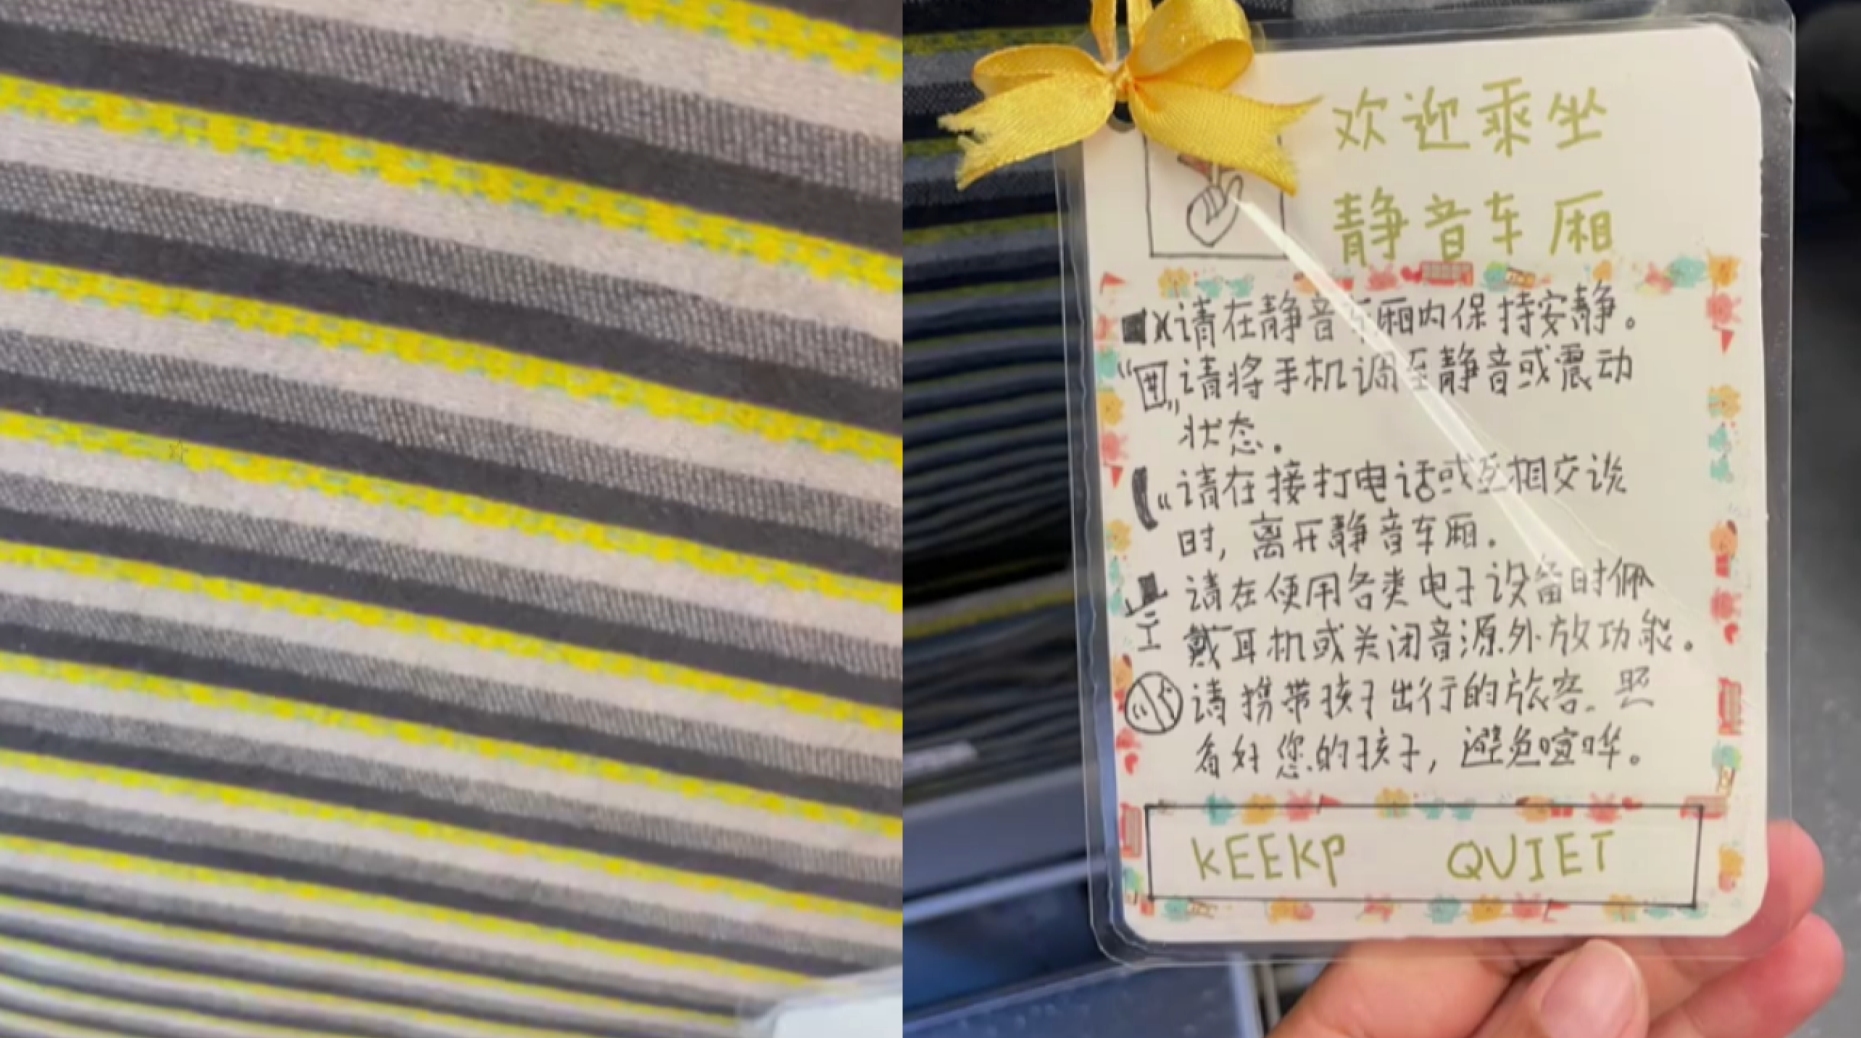 欢迎乘坐
静音车厢
请在静音车厢内保持安静。
请将手机调至静音或震动
状态。
请在接打电话或互相交谈
时,离开静音车厢.
请在使用各类电子设备时佩
戴耳机或关闭音源外放功能。
请携带孩子出行的旅客.照
看好您的孩子,避免喧哗。
KEEKP QUIET